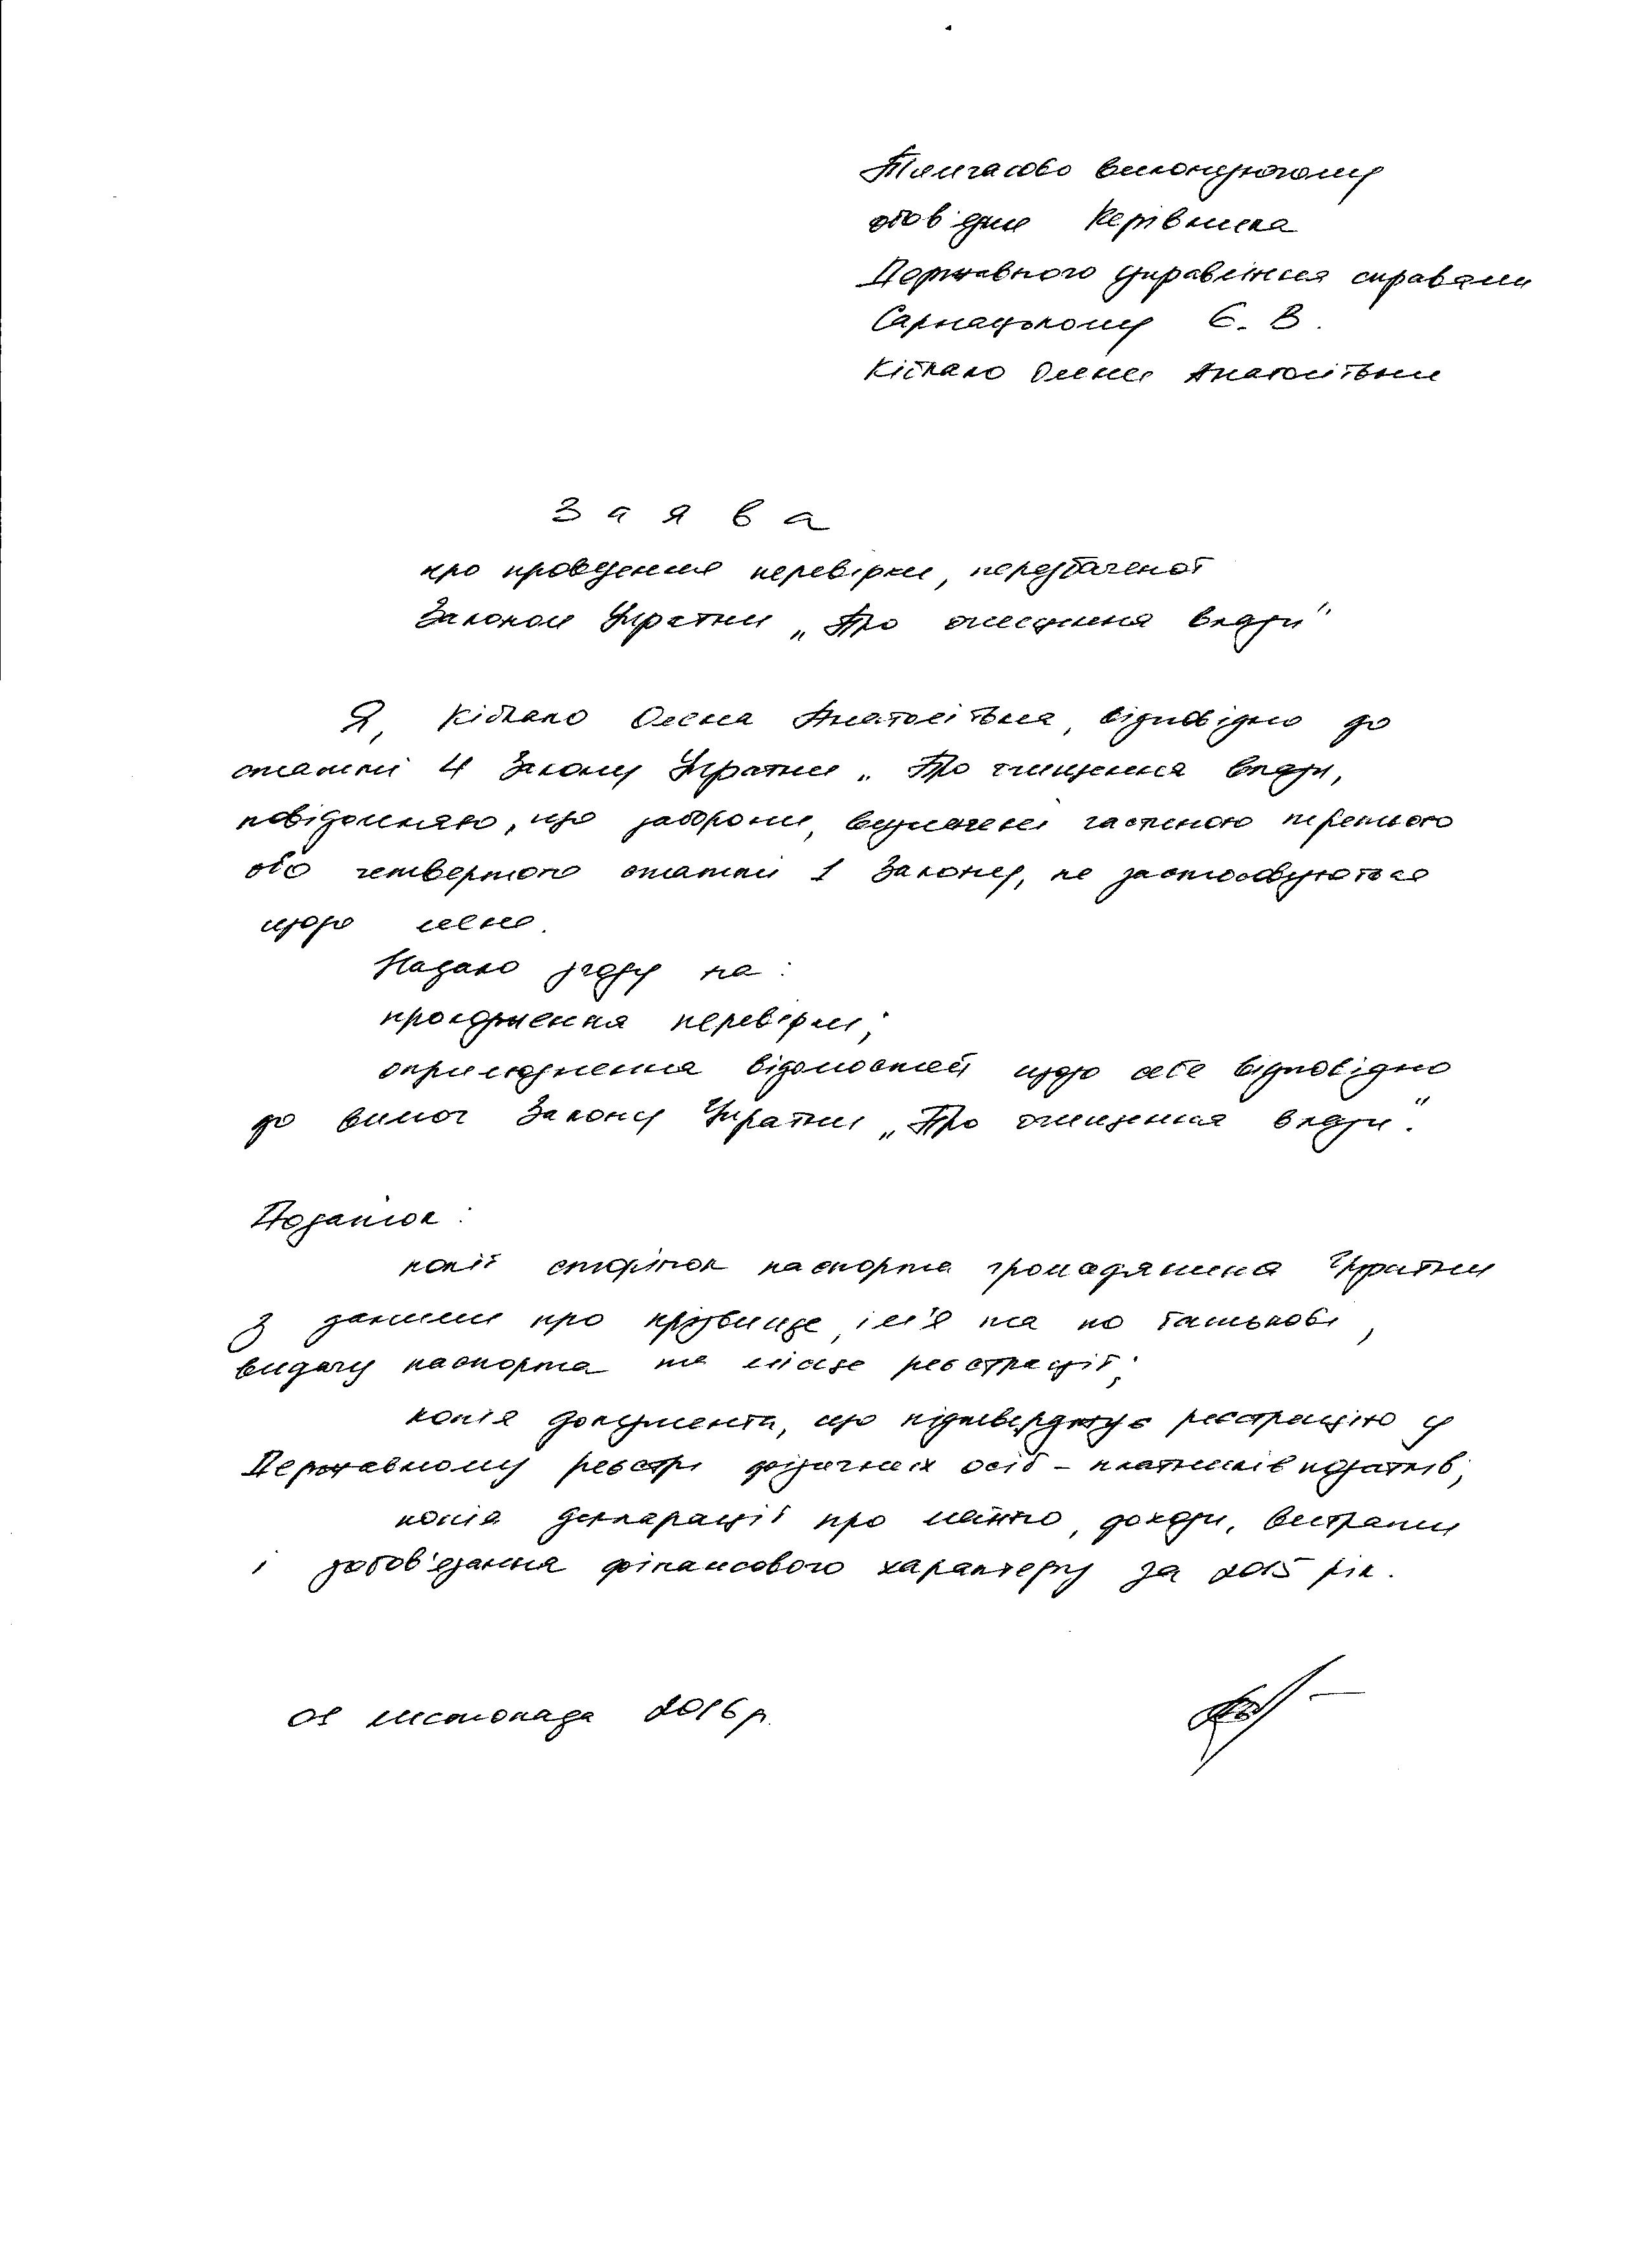 Тимчасово виконуючому
обов'язки Керівника
Державного управління справами
Сарнацькому Є. В.
Кібкало Олени Анатоліївни
З а я в а
про проведення перевірки, передбаченої
Законом України „Про очищення влади"
Я, Кібкало Олена Анатоліївна, відповідно до
статті 4 Закону України „Про очищення влади,
повідомляю, що заборони, визначені частиною третьою
або четвертою статті 1 Закону, не застосовуються
щодо мене.
Надаю згоду на:
проходження перевірки;
оприлюднення відомостей щодо себе відповідно
до вимог Закону України „Про очищення влади".
Додаток:
копії сторінок паспорта громадянина України
з даними про прізвище, ім'я та по батькові,
видачу паспорта та місце реєстрації;
копія документа, що підтверджує реєстрацію у
Державному реєстрі фізичних осіб - платників податків;
копія декларації про майно, доходи, витрати
і зобов'язання фінансового характеру за 2015 рік.
01 листопада 2016 р.